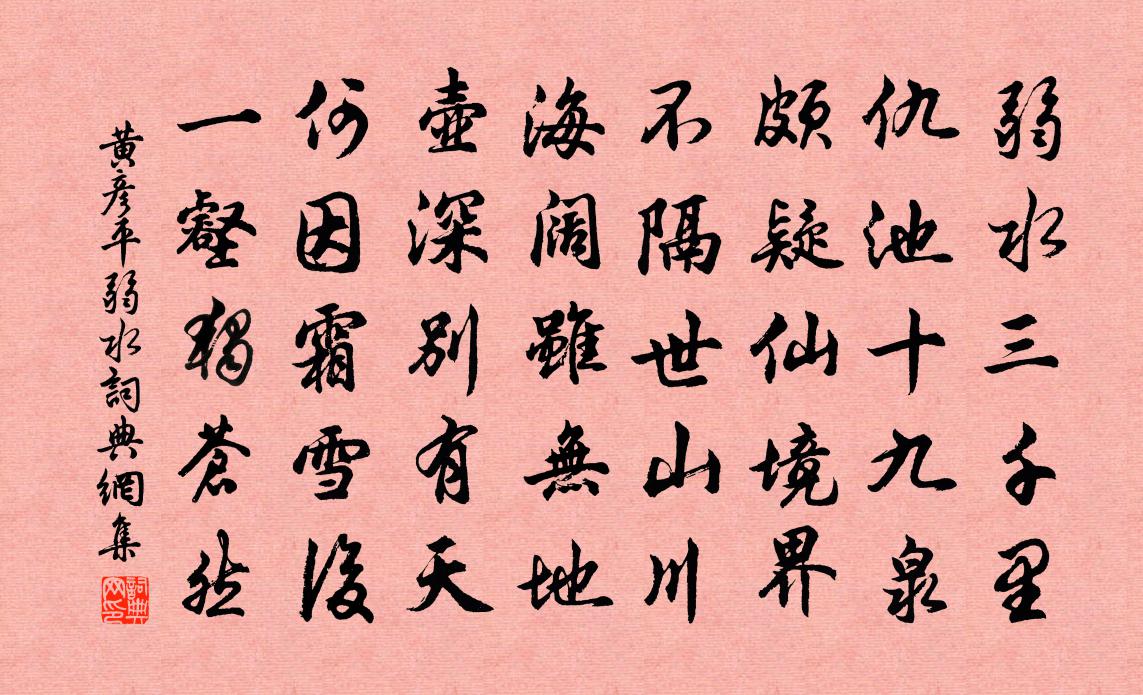 弱水三千里
仇池十九泉
頗疑仙境界
不隔世山川
海闊雖無地
壺深別有天
何因霜雪後
一壑獨蒼然
黃彥平弱水詞典網集
詞典網印